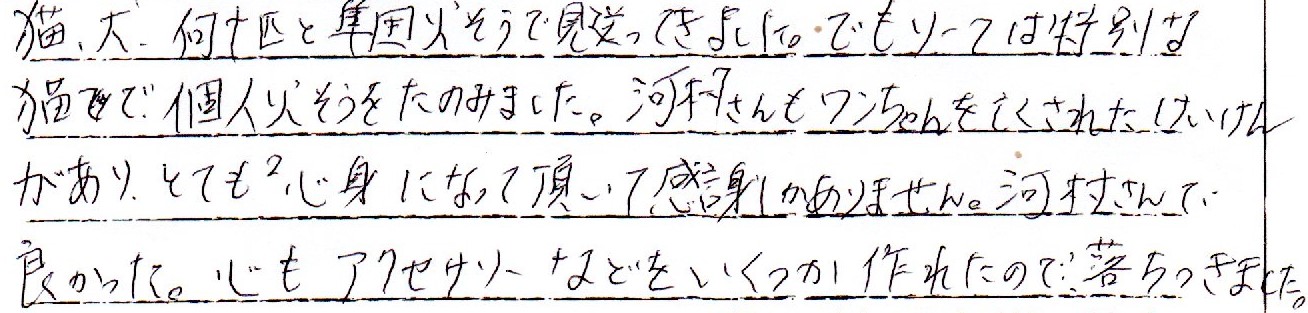 猫、犬、何十匹と集団火そうで見送ってきました。でもソーフは特別な
猫なので個人火そうをたのみました。河村さんもワンちゃんを亡くされたけいけん
があり、とても2心身になって頂いて感謝しかありません。河村さんで
良かった。心もアクセサリーなどをいくつか作れたので落ちつきました。